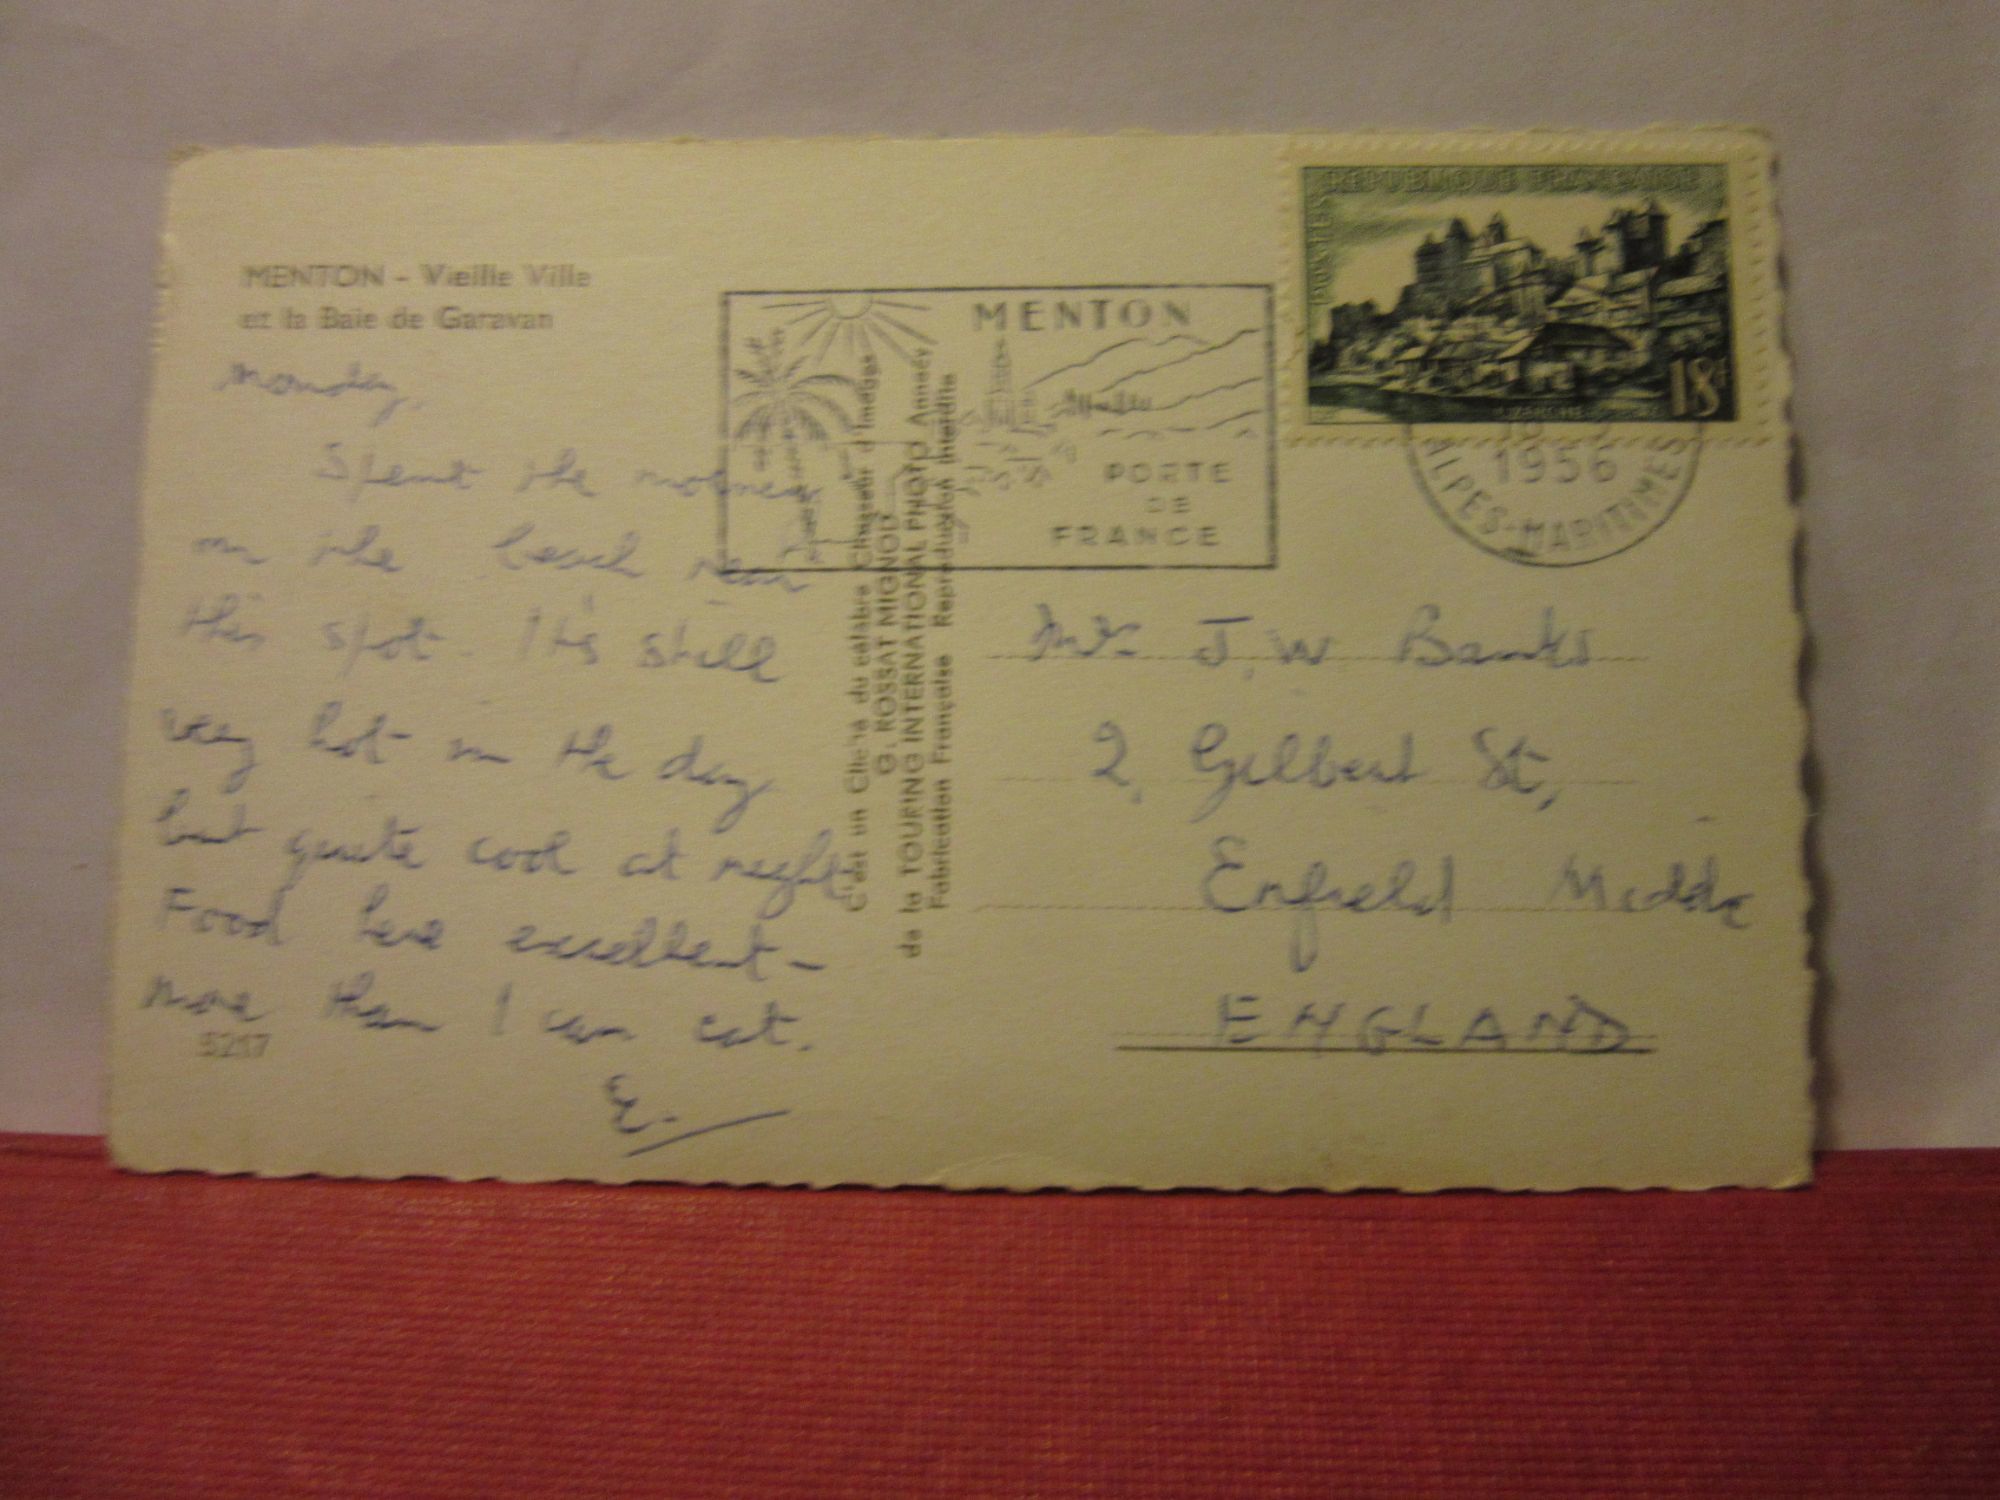 MENTON - Vieille Ville
et la Baie de Garavan
Monday,
Spent the morning
on the beach near
this spot. It's still
very hot in the day
but quite cool at night.
Food here excellent -
more than I can eat.
E.
5217
C'est un Cliché du célèbre Chasseur d'Images
G. ROSSAT MIGNOD
de la TOURING INTERNATIONAL PHOTO Annecy
Fabrication Française Reproduction Interdite
MENTON
PORTE
DE
FRANCE
REPUBLIQUE FRANÇAISE
POSTES
UZERCHE
18f
1956
ALPES-MARITIMES
J. W Banks
2, Gilbert St,
Enfield Middx
ENGLAND